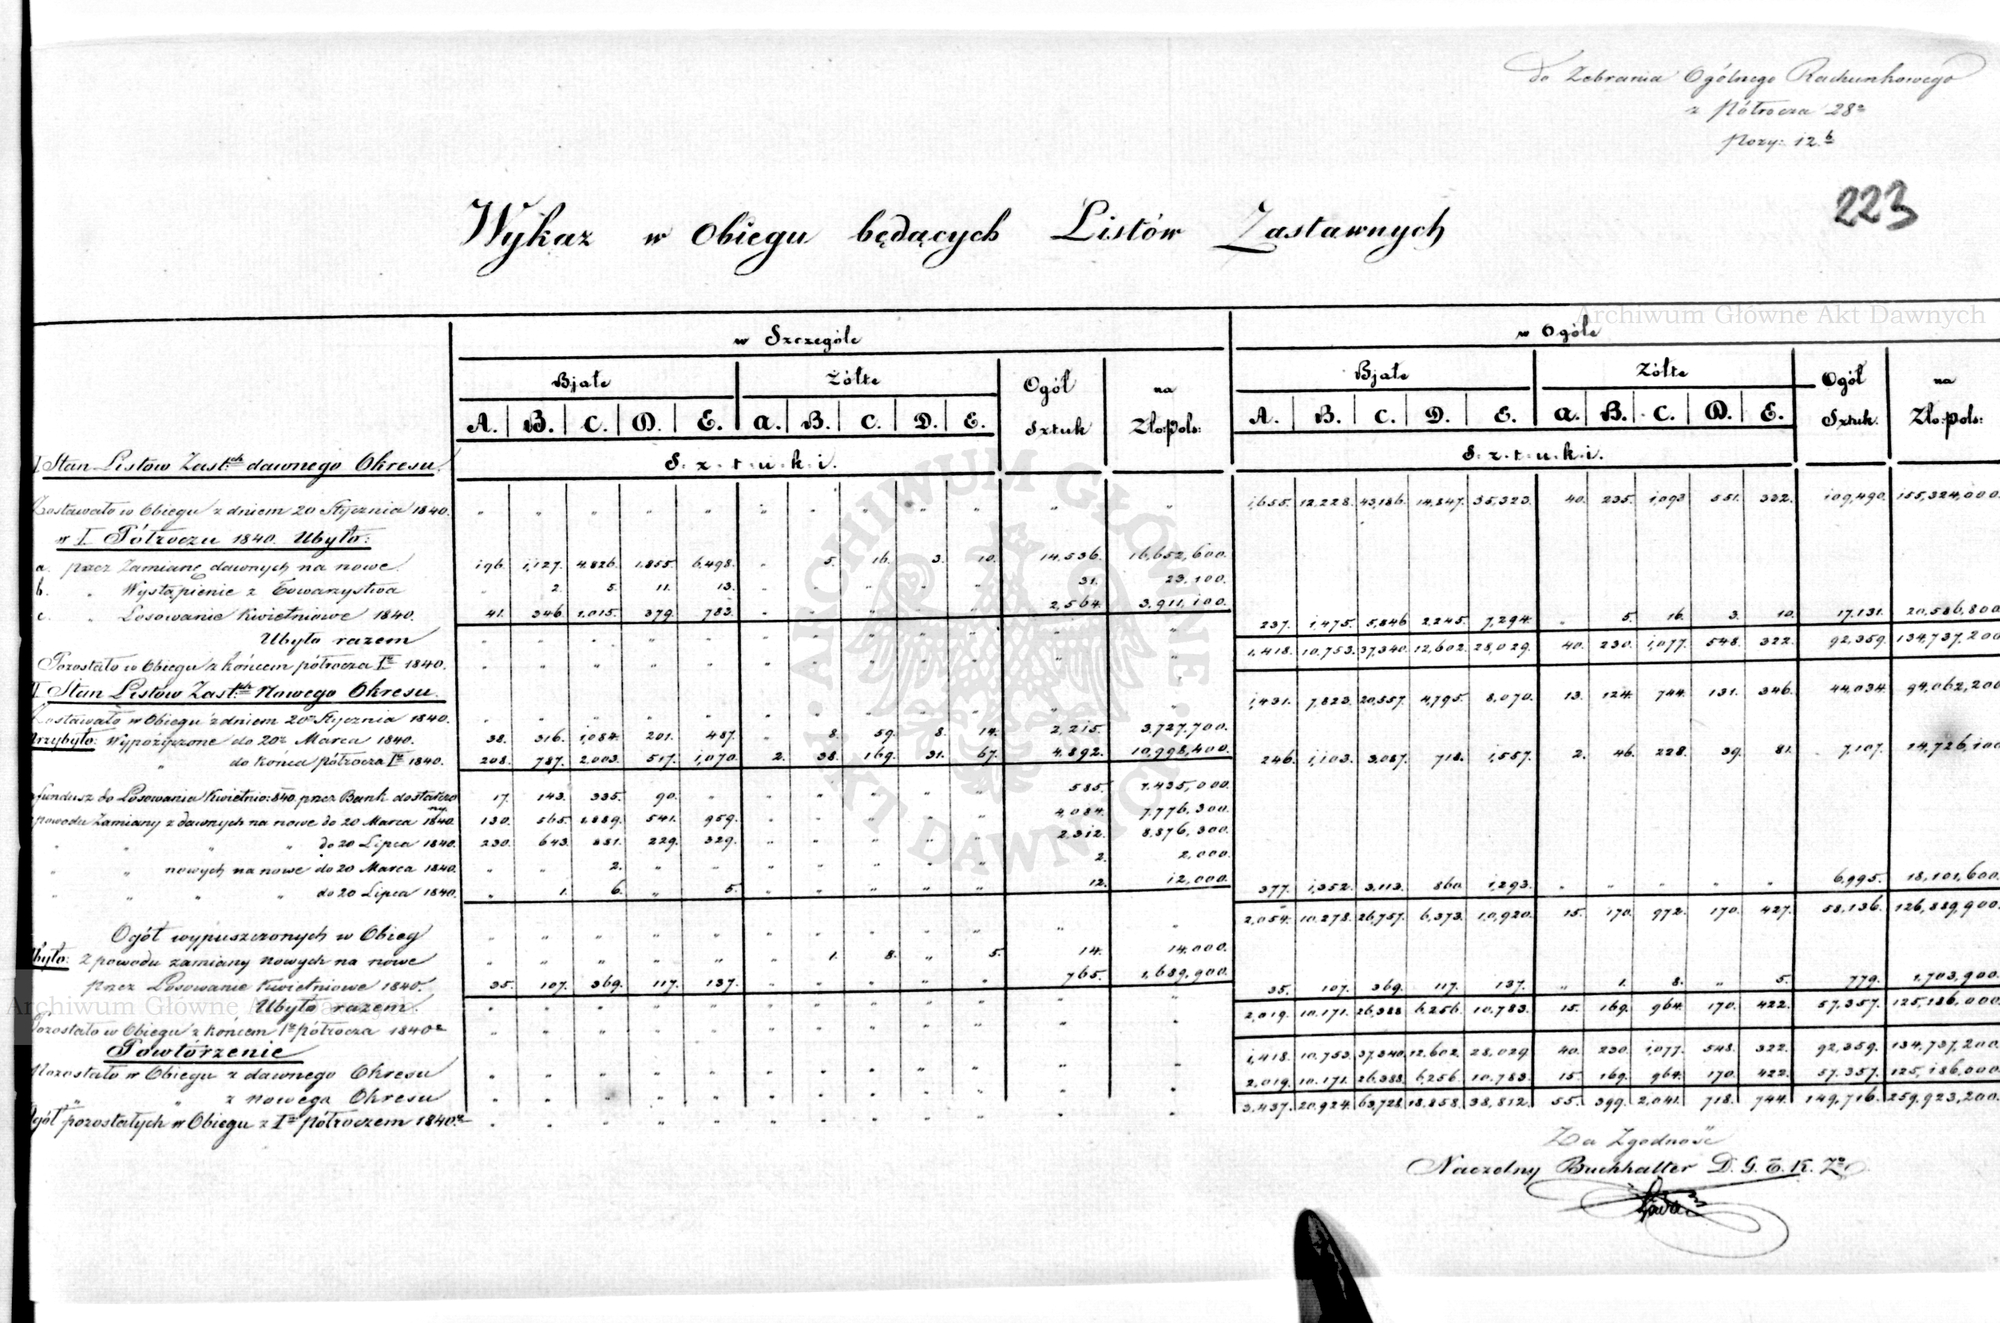 do Zebrania Ogólnego Rachunkowego
z Półrocza 28º
Pozy: 12.b
223
Wykaz w Obiegu będących Listów Zastawnych
Archiwum Główne Akt Dawnych
w Szczególe w Ogóle
Białe Żółte Ogół Sztuk na Zło:pols: Białe Żółte Ogół Sztuk na Zło:pols:
A. B. C. D. E. A. B. C. D. E. A. B. C. D. E. A. B. C. D. E.
S.z.t.u.k.i. S.z.t.u.k.i.
I Stan Listów Zast.ch dawnego Okresu.
Zostawało w Obiegu z dniem 20 Stycznia 1840. 1,655. 12,228. 43,186. 14,847. 35,323. 40. 235. 1,093. 551. 332. 109,490. 155,324,000.
w I Półroczu 1840. Ubyło:
a. przez Zamianę dawnych na nowe. 196. 1,127. 4,826. 1,855. 6,498. „ 5. 16. 3. 10. 14,536. 16,652,600.
b. „ Wystąpienie z Towarzystwa „ 2. 5. 11. 13. 31. 23,100.
c. „ Losowanie Kwietniowe 1840. 41. 346. 1,015. 379. 783. 2,564. 3,911,100.
Ubyło razem 237. 1,475. 5,846. 2,245. 7,294. „ 5. 16. 3. 10. 17,131. 20,586,800.
Pozostało w Obiegu z końcem półrocza Iº 1840. 1,418. 10,753. 37,340. 12,602. 28,029. 40. 230. 1,077. 548. 322. 92,359. 134,737,200.
II Stan Listów Zast.ch Nowego Okresu.
Zostawało w Obiegu z dniem 20º Stycznia 1840. 1,431. 7,823. 20,557. 4,795. 8,070. 13. 124. 744. 131. 346. 44,034. 94,062,200.
Przybyło: Wypożyczone do 20º Marca 1840. 38. 316. 1,084. 201. 487. „ 8. 59. 8. 14. 2,215. 3,727,700.
„ do końca półrocza Iº 1840. 208. 787. 2,003. 517. 1,070. 2. 38. 169. 31. 67. 4,892. 10,998,400. 246. 1,103. 3,087. 718. 1,557. 2. 46. 228. 39. 81. 7,107. 14,726,100.
fundusz do Losowania Kwietnio: 840 przez Bank dostarczony 17. 143. 335. 90. 585. 1,435,000.
powodu Zamiany z dawnych na nowe do 20 Marca 1840. 130. 565. 1,889. 541. 959. 4,084. 7,776,300.
„ „ „ do 20 Lipca 1840. 230. 643. 881. 229. 329. 2,312. 8,876,300.
„ „ nowych na nowe do 20 Marca 1840. 2. 2. 2,000.
„ „ „ do 20 Lipca 1840. „ 1. 6. „ 5. 12. 12,000. 377. 1,352. 3,113. 860. 1,293. 6,995. 18,101,600.
Ogół wypuszczonych w Obieg 2,054. 10,278. 26,757. 6,373. 10,920. 15. 170. 972. 170. 427. 58,136. 126,889,900.
Ubyło: Z powodu zamiany nowych na nowe 1. 8. „ 5. 14. 14,000.
przez Losowanie Kwietniowe 1840. 35. 107. 369. 117. 137. 765. 1,689,900.
Ubyło razem 35. 107. 369. 117. 137. „ 1. 8. „ 5. 779. 1,703,900.
Pozostało w Obiegu z końcem Iº półrocza 1840º 2,019. 10,171. 26,388. 6,256. 10,783. 15. 169. 964. 170. 422. 57,357. 125,186,000.
Powtórzenie
Pozostało w Obiegu z dawnego Okresu 1,418. 10,753. 37,340. 12,602. 28,029. 40. 230. 1,077. 548. 322. 92,359. 134,737,200.
„ „ z nowego Okresu 2,019. 10,171. 26,388. 6,256. 10,783. 15. 169. 964. 170. 422. 57,357. 125,186,000.
Ogół pozostałych w Obiegu z Iº półroczem 1840º 3,437. 20,924. 63,728. 18,858. 38,812. 55. 399. 2,041. 718. 744. 149,716. 259,923,200.
Za Zgodność
Naczelny Buchhalter D. G. T. K. Zº
ARCHIWUM GŁÓWNE AKT DAWNYCH
Archiwum Główne Akt Dawnych